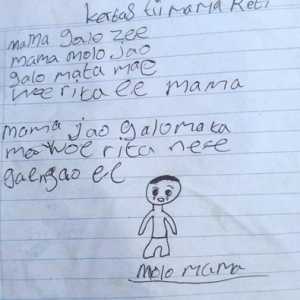 kertas tii mama Reti
mama galo zee
mama molo jao
galo mata mae
woe rita ee mama
mama jao galo mata
mae woe rita nee
ga ngao ee
molo mama